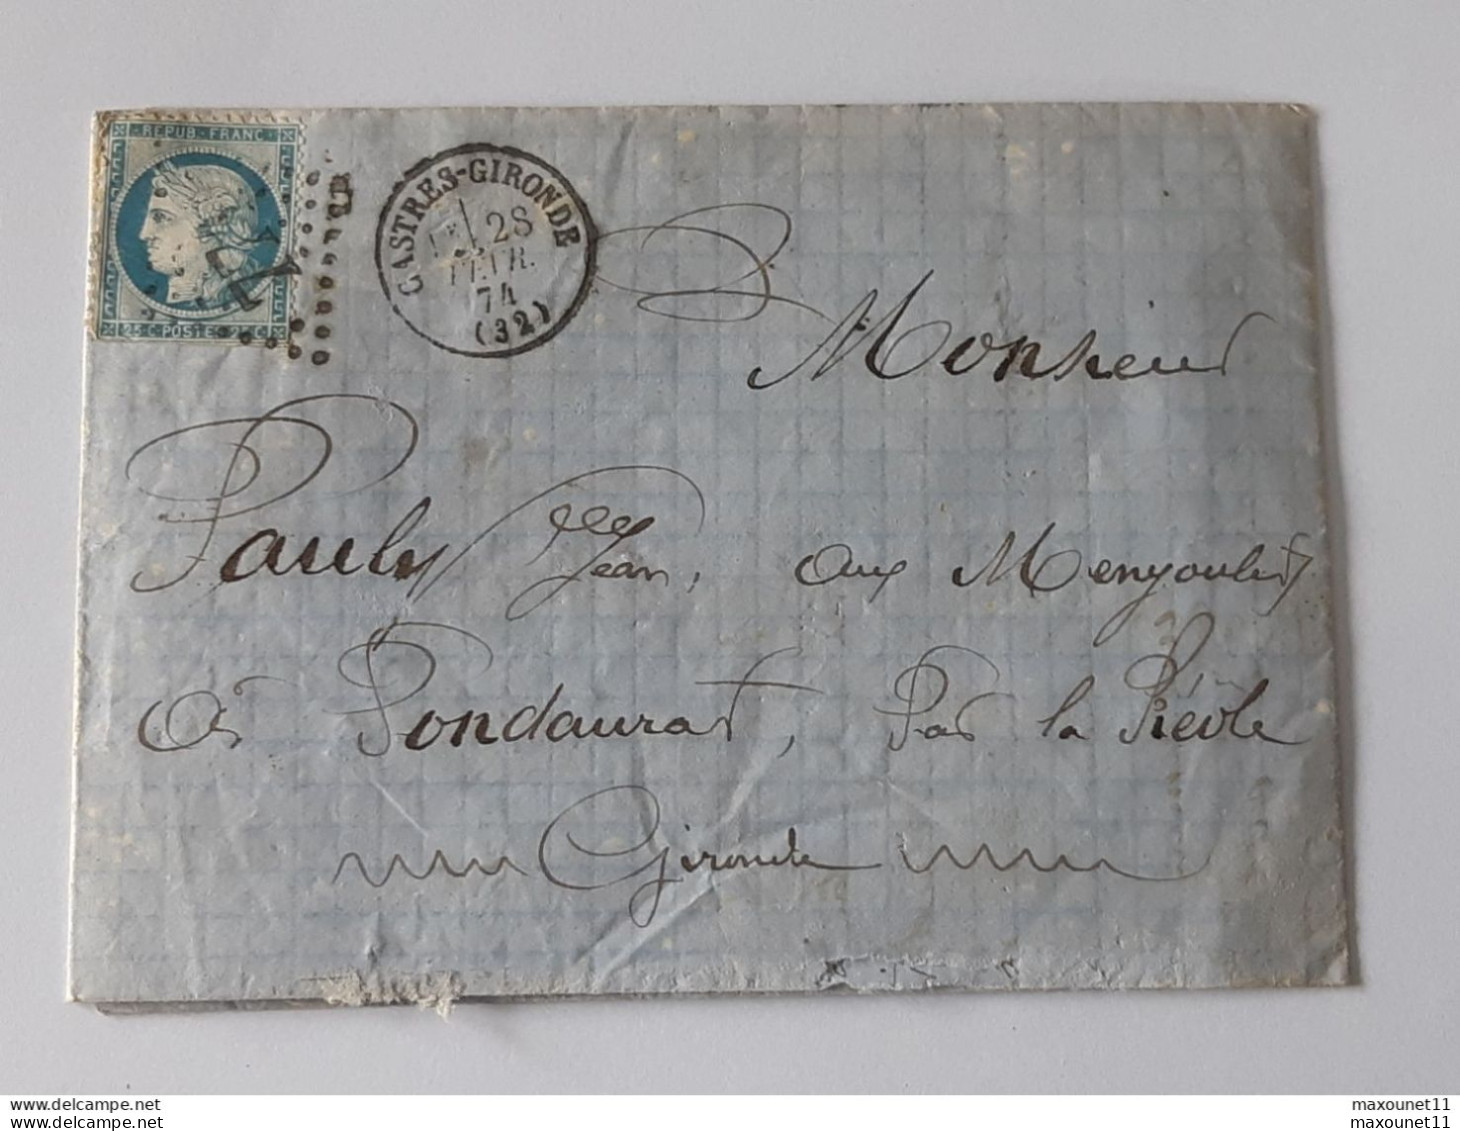 REPUB. FRANC
25 C POSTE 25 C
CASTRES-GIRONDE
28
FEVR.
74
(32)
Monsieur
Pauly Jean, aux Menyoulets
à Pondaurat, Par la Réole
Gironde
www.delcampe.net
maxounet11
maxounet11
maxounet11
maxounet11